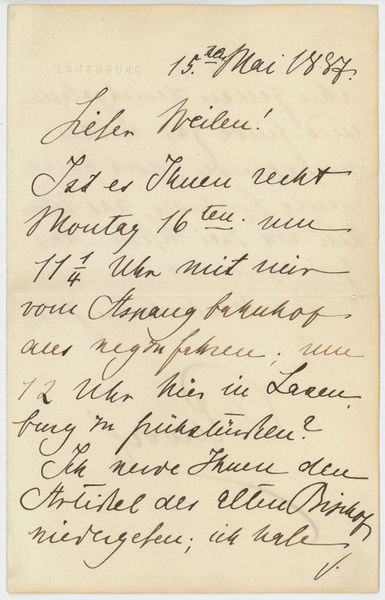 LAXENBURG
15.ten Mai 1887.
Lieber Weilen!
Ist es Ihnen recht
Montag 16ten um
11 1/4 Uhr mit mir
vom Aspangbahnhof
aus wegzufahren, um
12 Uhr hier in Laxen
burg zu frühstücken?
Ich werde Ihnen den
Artikel des alten Bischof
wiedergeben; ich habe